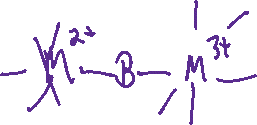 M²⁺ — B — M³⁺